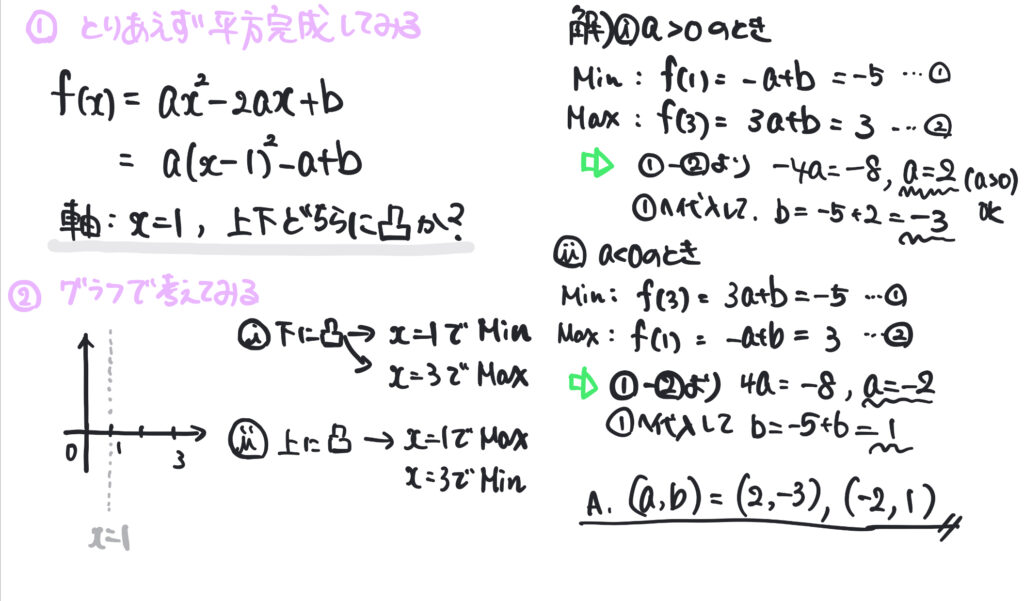 ① とりあえず平方完成してみる
f(x) = ax²-2ax+b
= a(x-1)²-a+b
軸: x=1, 上下どちらに凸か?
② グラフで考えてみる
ⓘ 下に凸 → x=1でMin
→ x=3でMax
ⓘⓘ 上に凸 → x=1でMax
x=3でMin
0 1 3
x=1
解) ⓘ a>0のとき
Min: f(1) = -a+b = -5 …①
Max: f(3) = 3a+b = 3 …②
⇨ ①-②より -4a=-8, a=2 (a>0)
OK
①へ代入して. b=-5+2=-3
ⓘⓘ a<0のとき
Min: f(3) = 3a+b=-5 …①
Max: f(1) = -a+b = 3 …②
⇨ ①-②より 4a=-8, a=-2
①へ代入して b=-5+6=1
A. (a,b)=(2,-3), (-2,1)